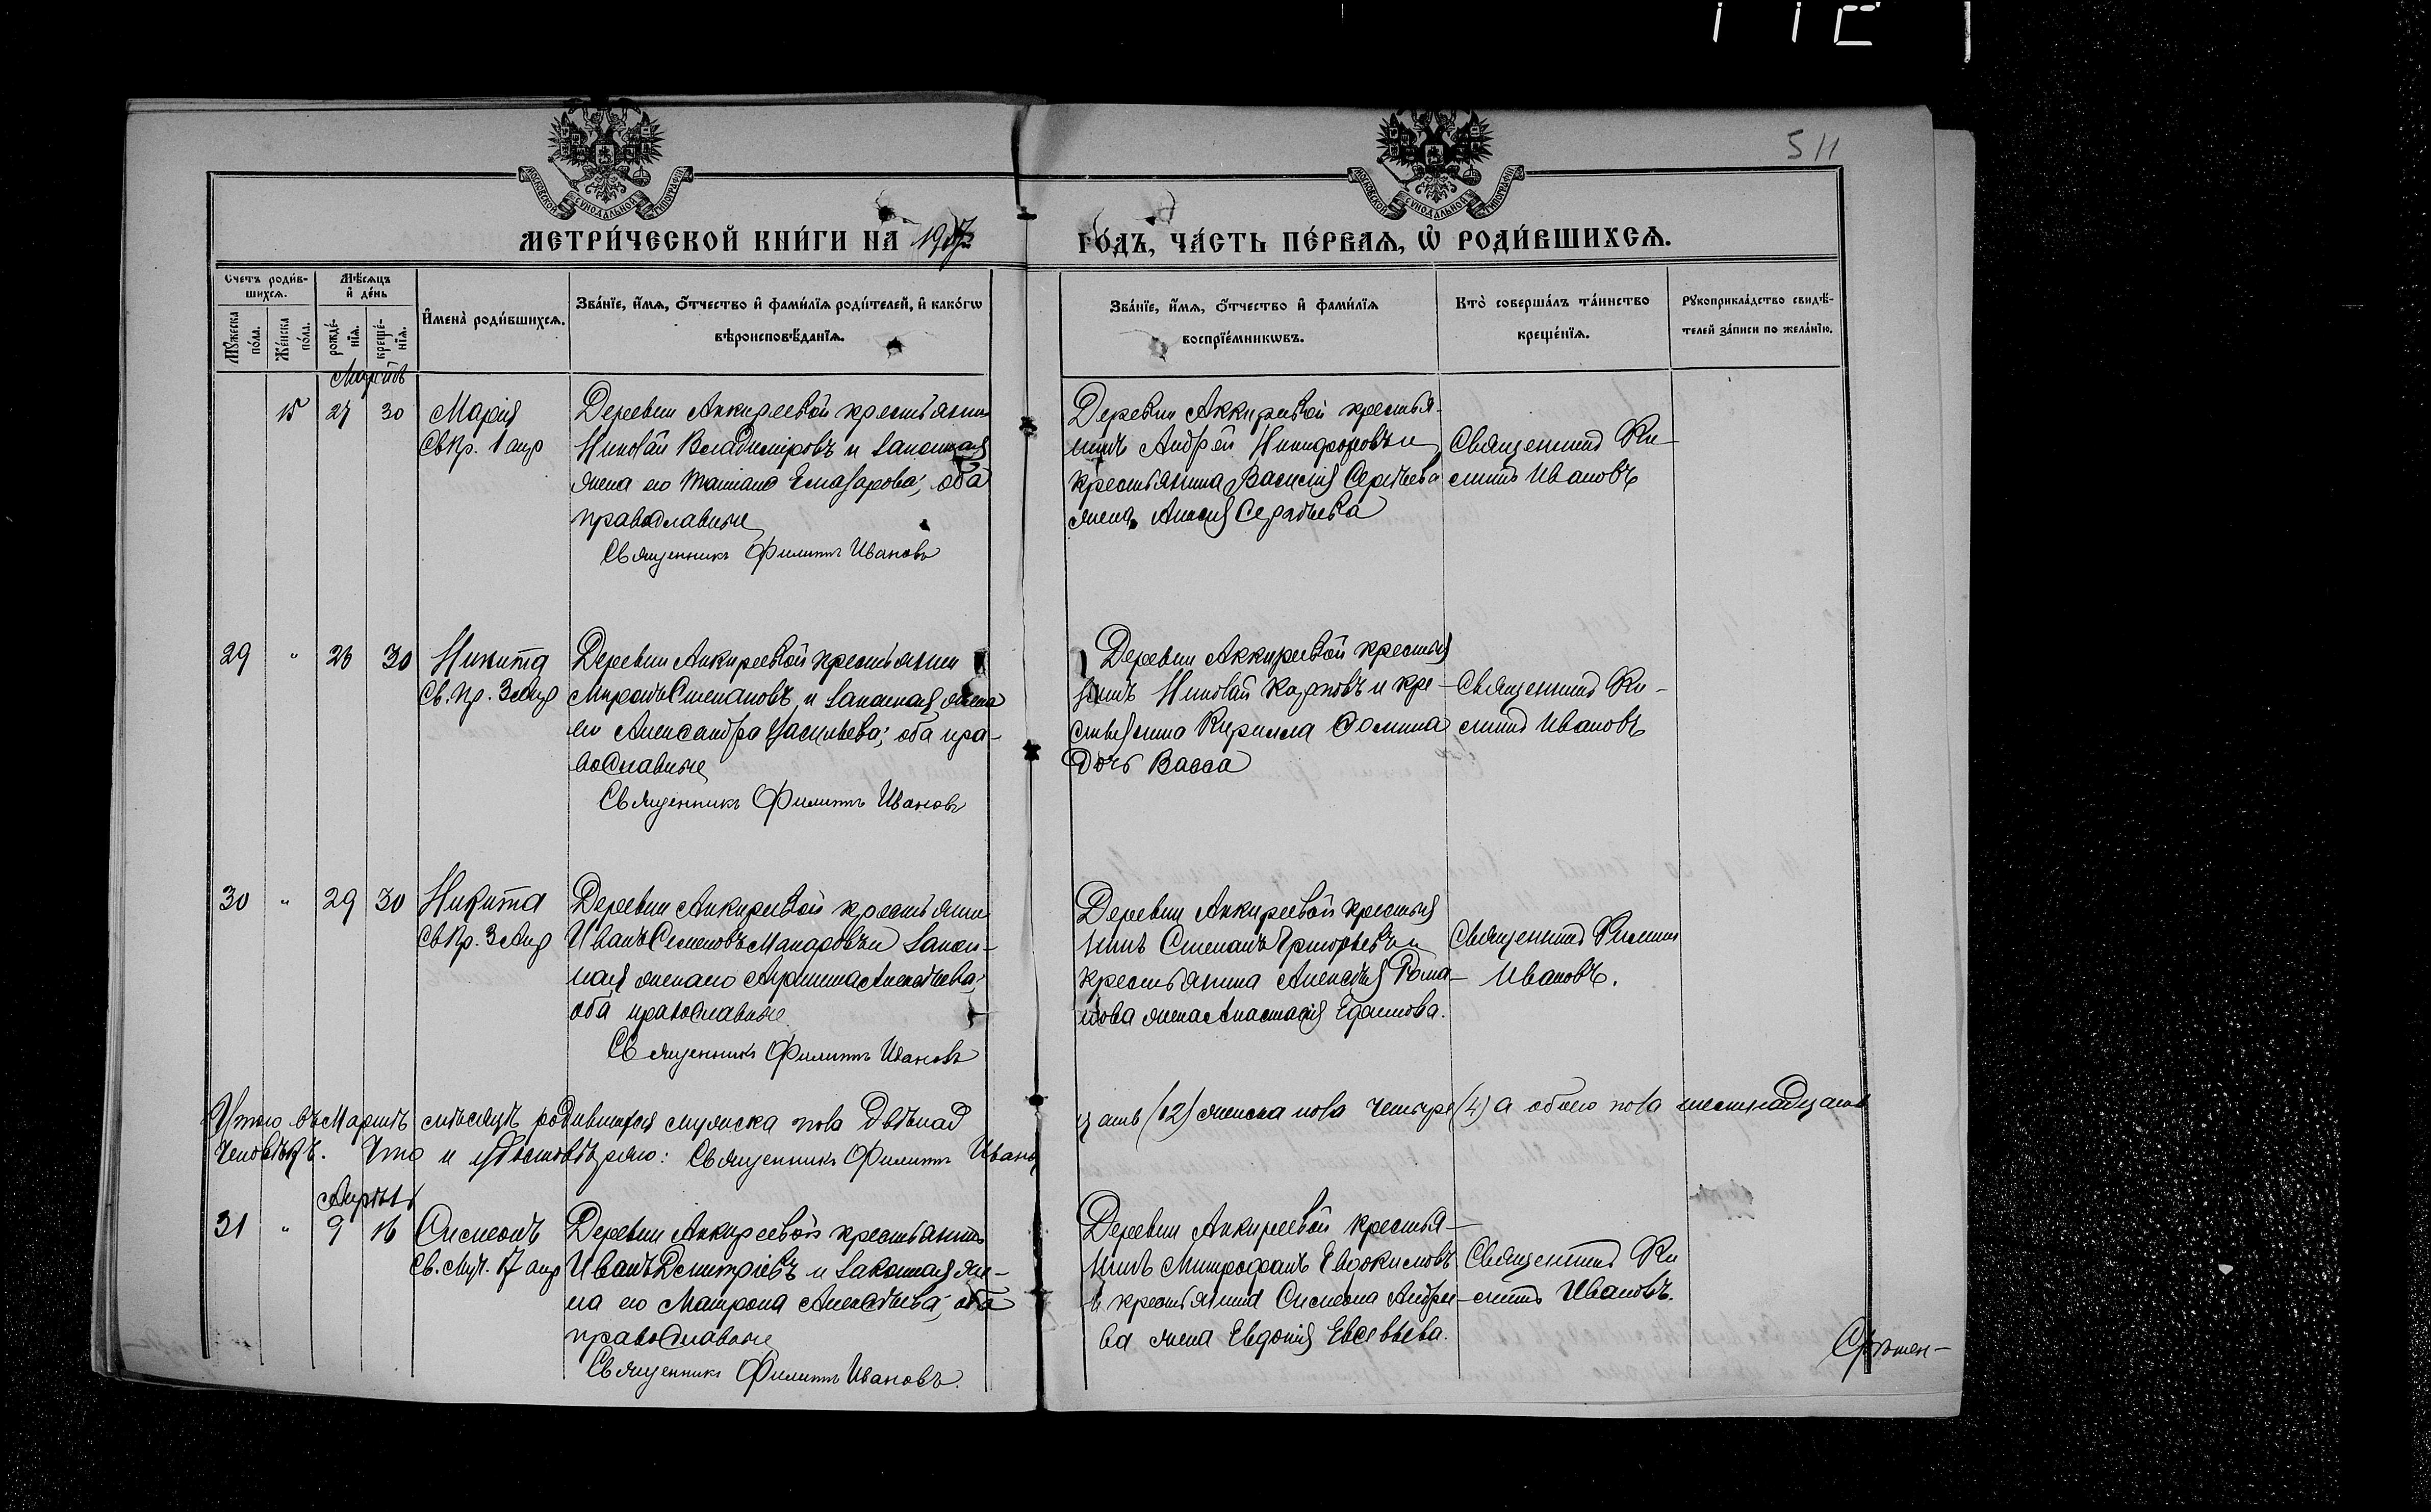 511
МОСКОВСКОЙ СУНОДАЛЬНОЙ ТИПОГРАФІИ
МОСКОВСКОЙ СУНОДАЛЬНОЙ ТИПОГРАФІИ
МЕТРИ́ЧЕСКОЙ КНИ́ГИ НА 19
ГО́ДЪ, ЧА́СТЬ ПЕ́РВАѦ, Ѡ҆ РОДИ́ВШИХСѦ.
Счетъ роди́в-
шихсѧ.
Мѣ́сѧцъ
и҆ де́нь
Мꙋ́жеска по́ла.
Же́нска по́ла.
рожде́-нїѧ.
креще́-нїѧ.
И҆мена̀ роди́вшихсѧ.
Зва́нїе, и҆́мѧ, ѻ҆́тчество и҆ фами́лїѧ роди́телей, и҆ како́гѡ
вѣроисповѣ́данїѧ.
Зва́нїе, и҆́мѧ, ѻ҆́тчество и҆ фами́лїѧ
воспрїе́мникѡвъ.
Кто̀ соверша́лъ та́инство
креще́нїѧ.
Рꙋкоприкла́дство свидѣ́-
телей за́писи по жела́нїю.
Мартъ
15 27 30 Марія
Св Пр. 1 апр
Деревни Аккиреевой крестьянин
Николай Владиміровъ и законная
жена его Татіана Елеазарова; оба
православные
Священникъ Филиппъ Ивановъ
Деревни Аккиреевой крестья-
нинъ Андрей Никифоровъ и
крестьянина Василія Сергѣева
жена Анисія
Священникъ Фи-
липпъ Ивановъ
29 " 28 30 Никита
Св. Пр. 3 Апр
Деревни Аккиреевой крестьянин
Миронъ Степановъ и законная жена
его Александра Васильева; оба пра-
вославные
Священникъ Филиппъ Ивановъ
Деревни Аккиреевой крестья
нинъ Николай Карповъ и кре-
стьянина Кирилла Фомина
дочь Васса
Священникъ Фи-
липпъ Ивановъ
30 " 29 30 Никита
Св Пр. 3 Апр
Деревни Аккиреевой крестьянин
Иванъ Семеновъ Макаровъ и закон-
ная жена его Агриппина Алексѣева;
оба православные
Священникъ Филиппъ Ивановъ
Деревни Аккиреевой крестья
нинъ Степанъ Григорьевъ и
крестьянина Алексѣя Рома-
нова жена Анастасія
Священникъ Филиппъ
Ивановъ.
Итого въ Мартѣ мѣсяцѣ родившихся мужеска пола двѣнад
цать (12) женска пола четыре (4) а обоего пола шестнадцать
человѣкъ. Что и удостовѣряю: Священникъ Филиппъ Иванов
Апрѣль
31 " 9 16 Симеонъ
Св. Муч. 17 апр
Деревни Аккиреевой крестьянинъ
Иванъ Дмитріевъ и законная же-
на его Матрона Алексѣева; оба
православные
Священникъ Филиппъ Ивановъ.
Деревни Аккиреевой крестья-
нинъ Митрофанъ Евдокимовъ
и крестьянина Симеона Андре-
ва жена Евдокія Евсевьева.
Священникъ Фи
липпъ Ивановъ.